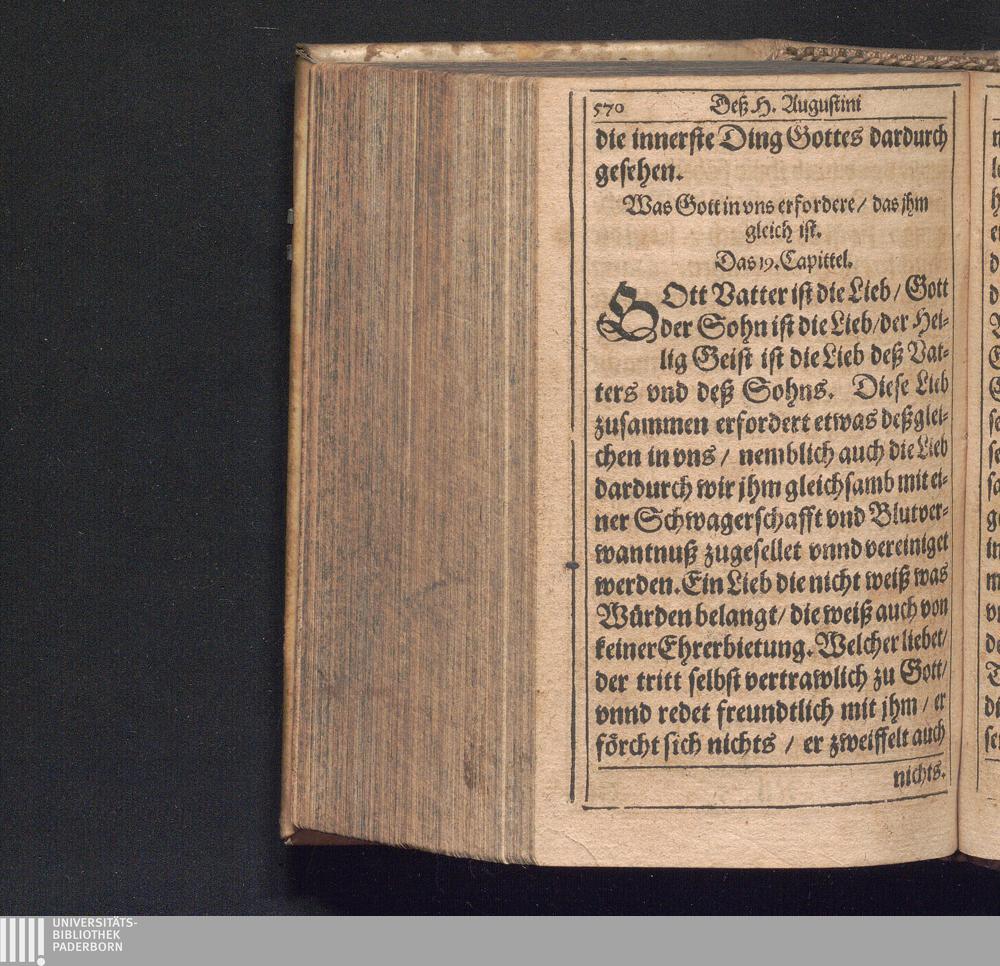 570 Deß H. Augustini
die innerste Ding Gottes dardurch
gesehen.
Was Gott in vns erfordere / das jhm
gleich ist.
Das 19. Capittel.
GOtt Vatter ist die Lieb / Gott
der Sohn ist die Lieb / der Hei-
lig Geist ist die Lieb deß Vat-
ters vnd deß Sohns. Diese Lieb
zusammen erfordert etwas deßglei-
chen in vns / nemblich auch die Lieb
dardurch wir jhm gleichsamb mit ei-
ner Schwagerschafft vnd Blutver-
wantnuß zugesellet vnnd vereiniget
werden. Ein Lieb die nicht weiß was
Würden belangt / die weiß auch von
keiner Ehrerbietung. Welcher liebet /
der tritt selbst vertrawlich zu Gott /
vnnd redet freundtlich mit jhm / er
förcht sich nichts / er zweiffelt auch
nichts.
UNIVERSITÄTS-
BIBLIOTHEK
PADERBORN